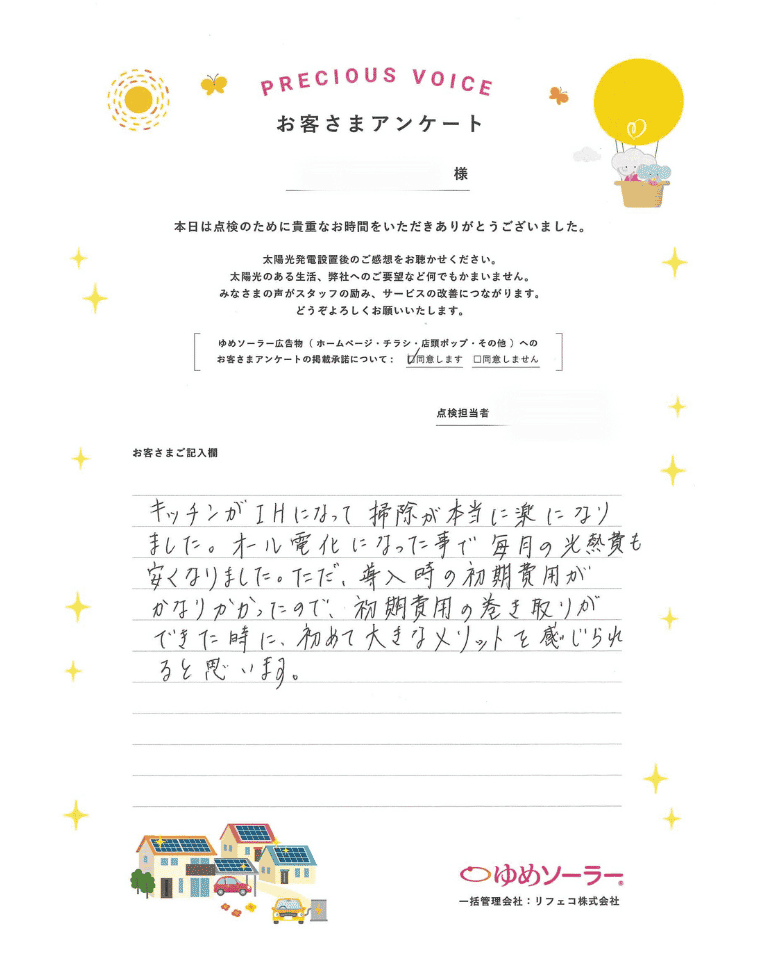 PRECIOUS VOICE
お客さまアンケート
様
本日は点検のために貴重なお時間をいただきありがとうございました。
太陽光発電設置後のご感想をお聴かせください。
太陽光のある生活、弊社へのご要望など何でもかまいません。
みなさまの声がスタッフの励み、サービスの改善につながります。
どうぞよろしくお願いいたします。
ゆめソーラー広告物（ホームページ・チラシ・店頭ポップ・その他）への
お客さまアンケートの掲載承諾について： ☑同意します □同意しません
点検担当者
お客さまご記入欄
キッチンがIHになって掃除が本当に楽になり
ました。オール電化になった事で毎月の光熱費も
安くなりました。ただ、導入時の初期費用が
かなりかかったので、初期費用の巻き取りが
できた時に、初めて大きなメリットを感じられ
ると思います。
ゆめソーラー®
一括管理会社：リフェコ株式会社